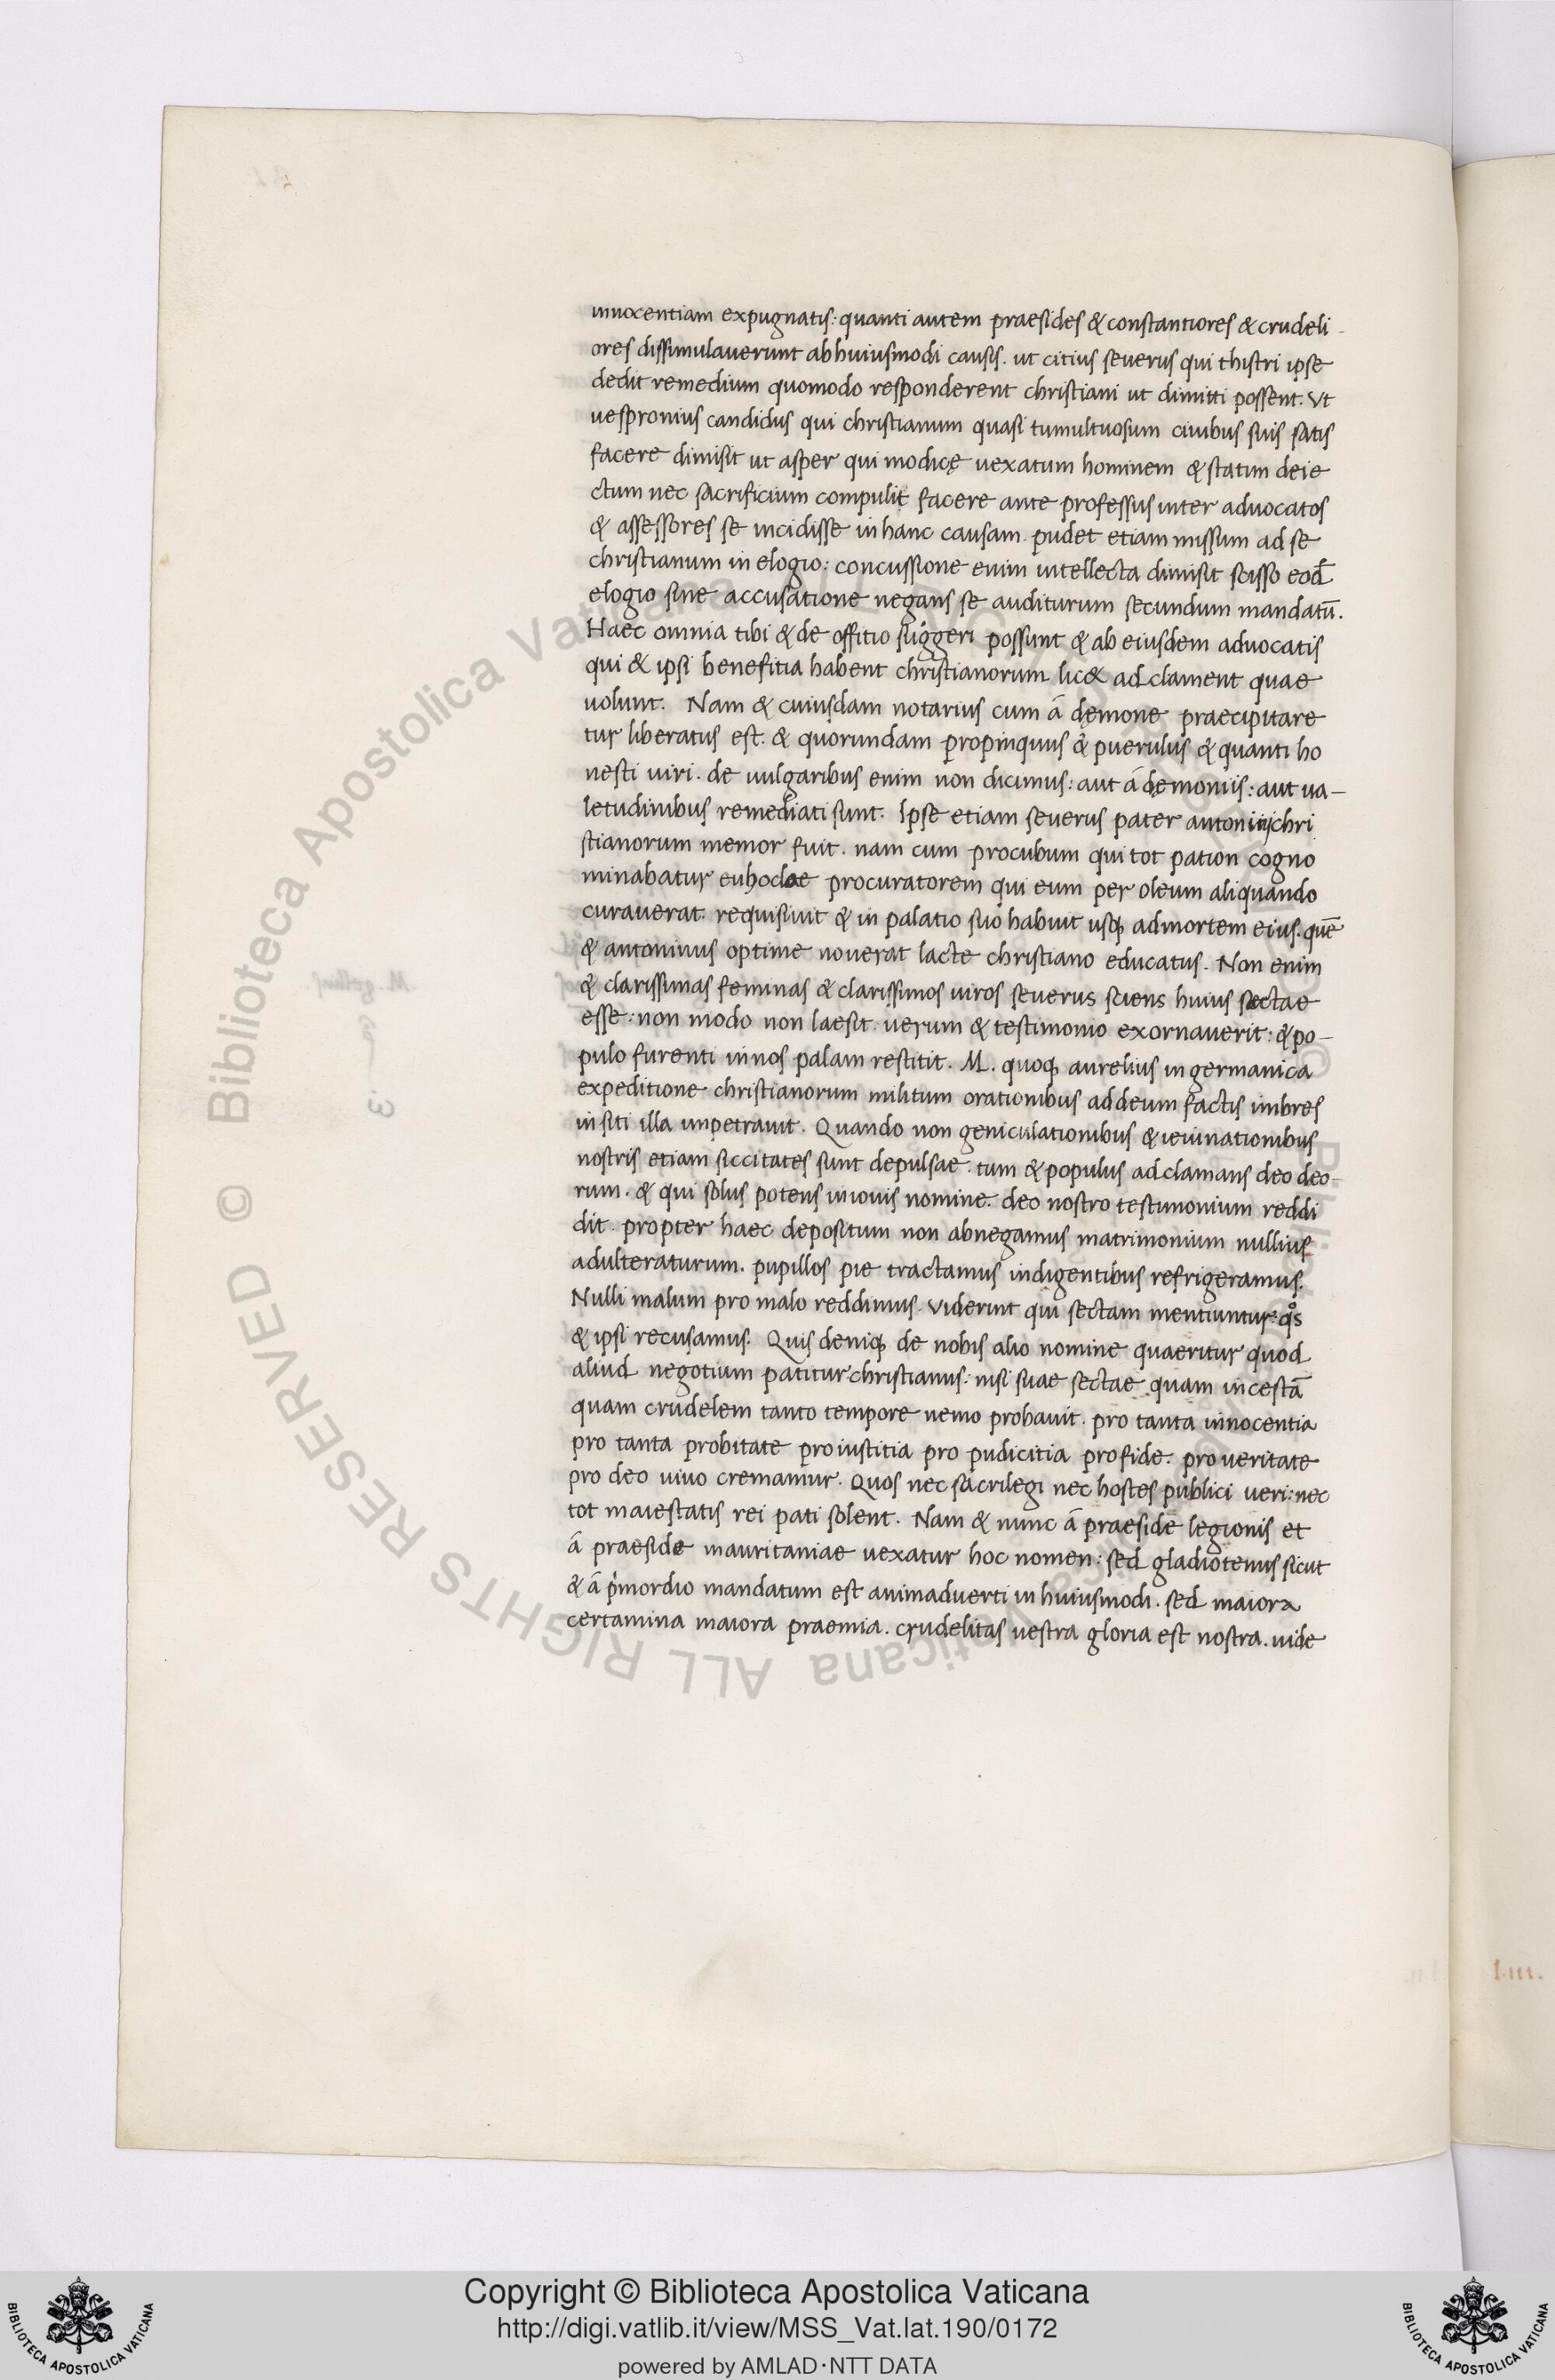 innocentiam expugnatis: quanti autem praesides & constantiores & crudeli-
ores dissimulaverunt ab huiusmodi causis. ut citius severus qui thistri ipse
dedit remedium quomodo responderent christiani ut dimitti possent. Vt
vespronius candidus qui christianum quasi tumultuosum civibus suis satis
facere dimisit ut asper qui modicę uexatum hominem & statim deie
ctum nec sacrificium compulit facere ante professus inter advocatos
& assessores se incidisse in hanc causam. pudet etiam missum ad se
christianum in elogio: concussione enim intellecta dimisit scisso eod̄
elogio sine accusatione negans se auditurum secundum mandatū.
Haec omnia tibi & de offitio suggeri possunt & ab eiusdem advocatis
qui & ipsi benefitia habent christianorum lic& adclament quae
uolunt. Nam & cuiusdam notarius cum á dęmone praecipitare
tur liberatus est. & quorundam propinquus & puerulus & quanti ho
nesti uiri. de uulgaribus enim non dicimus: aut á dęmoniis: aut ua-
letudinibus remediati sunt. Ipse etiam severus pater antonini chri
stianorum memor fuit. nam cum procubum qui tot pation cogno
minabatur euhodae procuratorem qui eum per oleum aliquando
curaverat. requisiuit & in palatio suo habuit usq; ad mortem eius. quē
& antoninus optime noverat lacte christiano educatus. Non enim
& clarissimas feminas & clarissimos uiros severus sciens huius sectae
esse: non modo non laesit. uerum & testimonio exornaverit: & po-
pulo furenti in nos palam restitit. M. quoq; aurelius in germanica
expeditione christianorum militum orationibus ad deum factis imbres
in siti illa impetravit. Quando non geniculationibus & ieiunationibus
nostris etiam siccitates sunt depulsae. tum & populus adclamans deo deo-
rum. & qui solus potens in iovis nomine. deo nostro testimonium reddi
dit. propter haec depositum non abnegamus matrimonium nullius
adulteraturum. pupillos pie tractamus indigentibus refrigeramus.
Nulli malum pro malo reddimus. Viderint qui sectam mentiuntur: qo̊s
& ipsi recusamus. Quis deniq; de nobis alio nomine quaeritur quod
aliud negotium patitur christianus: nisi suae sectae quam incestā
quam crudelem tanto tempore nemo probavit. pro tanta innocentia
pro tanta probitate pro iustitia pro pudicitia pro fide. pro veritate
pro deo uiuo cremamur. Quos nec sacrilegi nec hostes publici veri: nec
tot maiestatis rei pati solent. Nam & nunc á praeside legionis et
á praeside mauritaniae uexatur hoc nomen: sed gladiotenus sicut
& á pͥmordio mandatum est animadverti in huiusmodi. sed maiora
certamina maiora praemia. crudelitas uestra gloria est nostra. uide
l.iii.
Copyright © Biblioteca Apostolica Vaticana
http://digi.vatlib.it/view/MSS_Vat.lat.190/0172
powered by AMLAD·NTT DATA